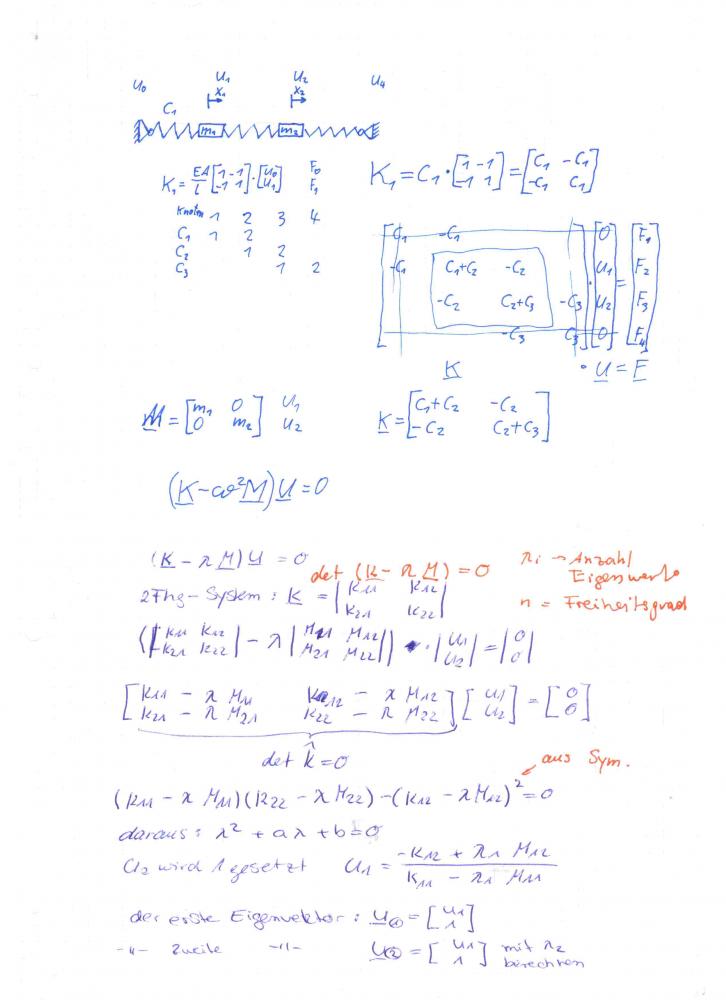 U₀ U₁ U₂ U₄
C₁ x₁ x₂
m₁ m₂
K₁ = EA/l [1 -1; -1 1] · [U₀; U₁] F₀ F₁
K₁ = C₁ · [1 -1; -1 1] = [C₁ -C₁; -C₁ C₁]
Knoten 1 2 3 4
C₁ 1 2
C₂ 1 2
C₃ 1 2
C₁ -C₁ 0 F₁
-C₁ C₁+C₂ -C₂ · U₁ = F₂
-C₂ C₂+C₃ -C₃ U₂ F₃
-C₃ C₃ 0 F₄
K · U = F
M = [m₁ 0; 0 m₂] U₁ U₂
K = [C₁+C₂ -C₂; -C₂ C₂+C₃]
(K - ω²M) U = 0
(K - λ M) U = 0
det (K - λ M) = 0
λi → Anzahl
Eigenwerte
n = Freiheitsgrad
2Fhg-System: K = |K₁₁ K₁₂; K₂₁ K₂₂|
(|K₁₁ K₁₂; K₂₁ K₂₂| - λ |M₁₁ M₁₂; M₂₁ M₂₂|) · |U₁; U₂| = |0; 0|
[K₁₁ - λ M₁₁ K₁₂ - λ M₁₂; K₂₁ - λ M₂₁ K₂₂ - λ M₂₂] [U₁; U₂] = [0; 0]
det K̂ = 0
aus Sym.
(K₁₁ - λ M₁₁)(K₂₂ - λ M₂₂) - (K₁₂ - λ M₁₂)² = 0
daraus: λ² + aλ + b = 0
U₂ wird 1 gesetzt U₁ = (-K₁₂ + λ₁ M₁₂)/(K₁₁ - λ₁ M₁₁)
der erste Eigenvektor: U① = [U₁; 1]
-"- zweite -"- U② = [U₁; 1] mit λ₂
berechnen